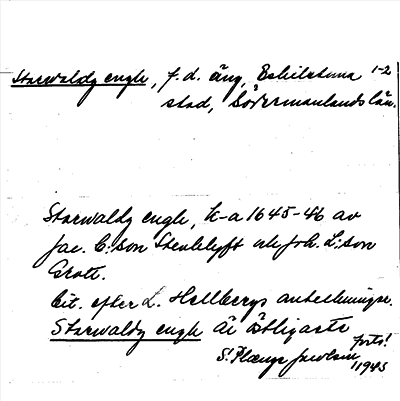 Starwaldz engh, f.d. äng, Eskilstuna 1-2
stad, Södermanlands län.
Starwaldz engh, K-a 1645-46 av
Jac. C:son Stenklyft och Joh. L:son
Grott.
Cit. efter L. Hellbergs anteckningar.
Starwaldz engh är östligaste
forts!
1945